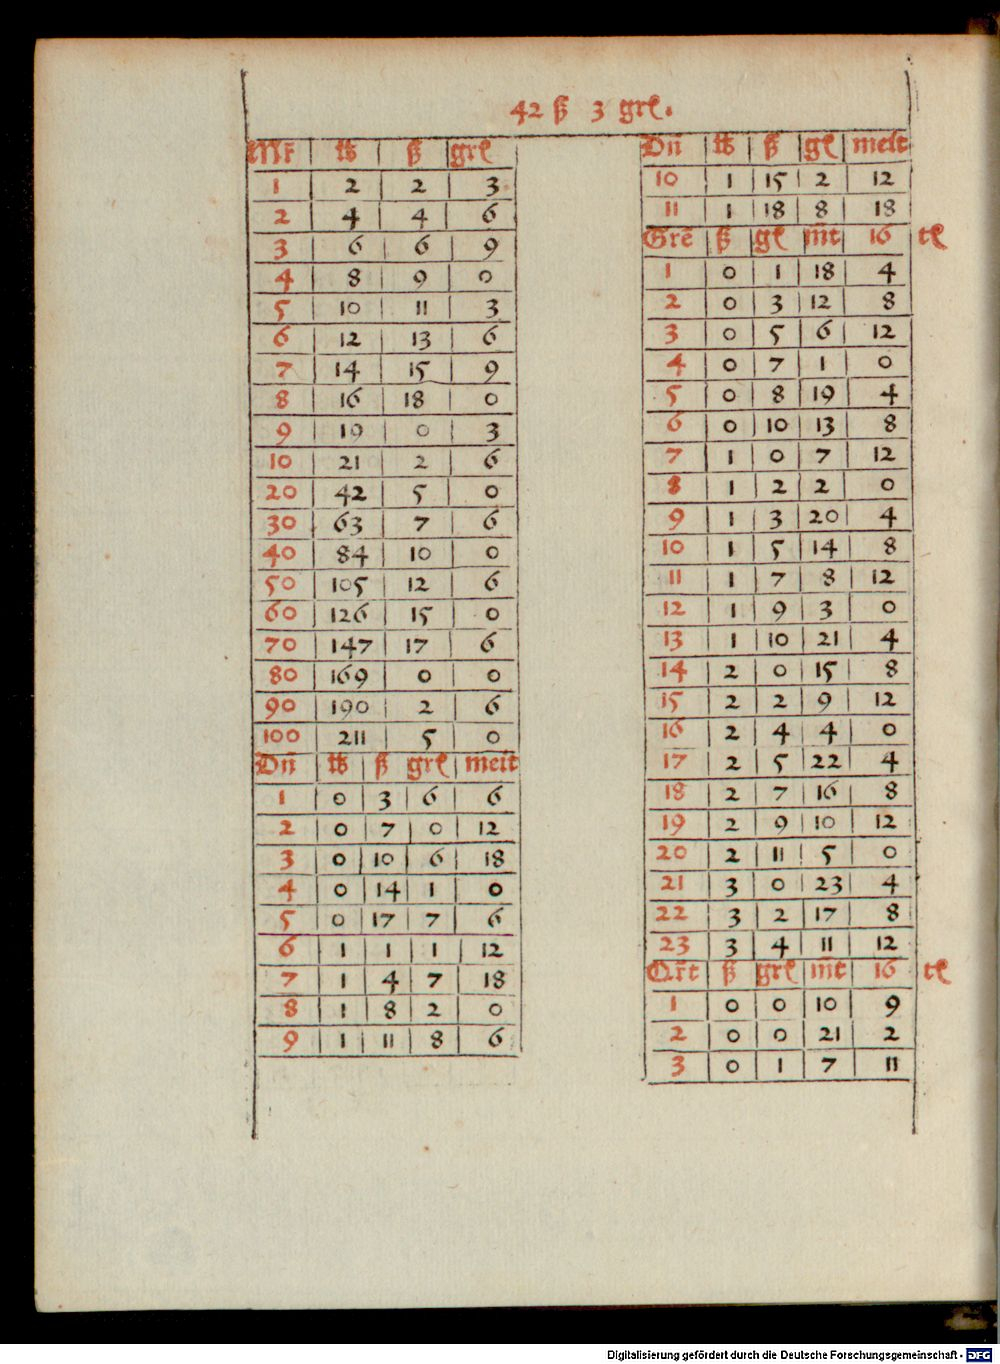 42 ß 3 grl.
Mr̄ | lb | ß | grl
1 | 2 | 2 | 3
2 | 4 | 4 | 6
3 | 6 | 6 | 9
4 | 8 | 9 | 0
5 | 10 | 11 | 3
6 | 12 | 13 | 6
7 | 14 | 15 | 9
8 | 16 | 18 | 0
9 | 19 | 0 | 3
10 | 21 | 2 | 6
20 | 42 | 5 | 0
30 | 63 | 7 | 6
40 | 84 | 10 | 0
50 | 105 | 12 | 6
60 | 126 | 15 | 0
70 | 147 | 17 | 6
80 | 169 | 0 | 0
90 | 190 | 2 | 6
100 | 211 | 5 | 0
Dn̄ | lb | ß | grl | melt
1 | 0 | 3 | 6 | 6
2 | 0 | 7 | 0 | 12
3 | 0 | 10 | 6 | 18
4 | 0 | 14 | 1 | 0
5 | 0 | 17 | 7 | 6
6 | 1 | 1 | 1 | 12
7 | 1 | 4 | 7 | 18
8 | 1 | 8 | 2 | 0
9 | 1 | 11 | 8 | 6
Dn̄ | lb | ß | gl | melt
10 | 1 | 15 | 2 | 12
11 | 1 | 18 | 8 | 18
Grē | ß | gl | m̄t | 16 tl
1 | 0 | 1 | 18 | 4
2 | 0 | 3 | 12 | 8
3 | 0 | 5 | 6 | 12
4 | 0 | 7 | 1 | 0
5 | 0 | 8 | 19 | 4
6 | 0 | 10 | 13 | 8
7 | 1 | 0 | 7 | 12
8 | 1 | 2 | 2 | 0
9 | 1 | 3 | 20 | 4
10 | 1 | 5 | 14 | 8
11 | 1 | 7 | 8 | 12
12 | 1 | 9 | 3 | 0
13 | 1 | 10 | 21 | 4
14 | 2 | 0 | 15 | 8
15 | 2 | 2 | 9 | 12
16 | 2 | 4 | 4 | 0
17 | 2 | 5 | 22 | 4
18 | 2 | 7 | 16 | 8
19 | 2 | 9 | 10 | 12
20 | 2 | 11 | 5 | 0
21 | 3 | 0 | 23 | 4
22 | 3 | 2 | 17 | 8
23 | 3 | 4 | 11 | 12
Qr̄t | ß | grl | m̄t | 16 tl
1 | 0 | 0 | 10 | 9
2 | 0 | 0 | 21 | 2
3 | 0 | 1 | 7 | 11
Digitalisierung gefördert durch die Deutsche Forschungsgemeinschaft - DFG